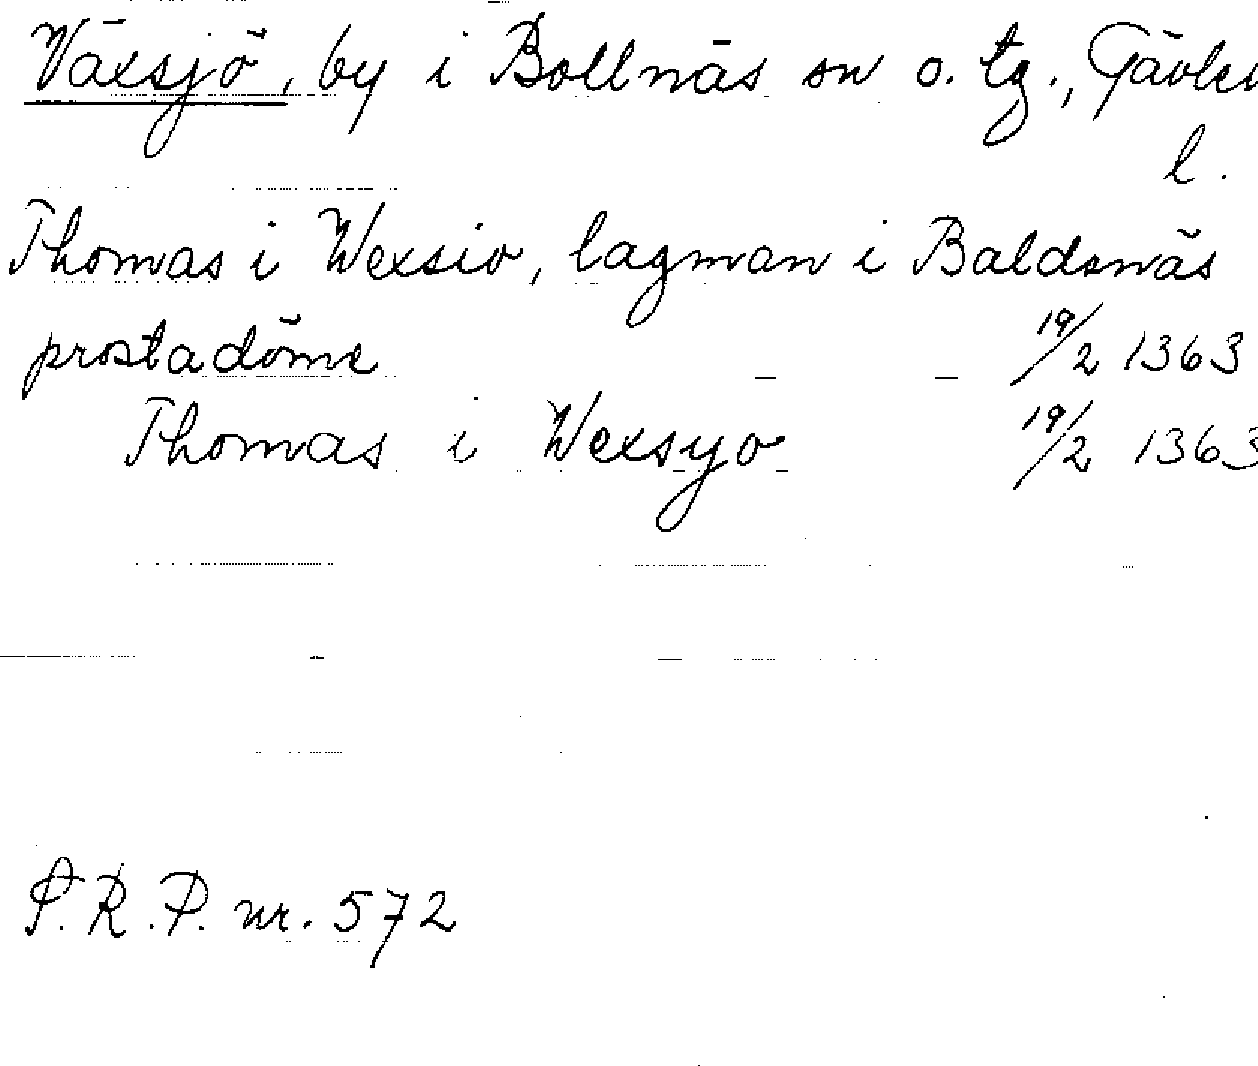 Växsjö, by i Bollnäs sn o. tg., Gävleb
l.
Thomas i Wexsio, lagman i Baldsnäs
prostadöme 19/2 1363
Thomas i Wexsyo 19/2 1363
S.R.P. nr. 572